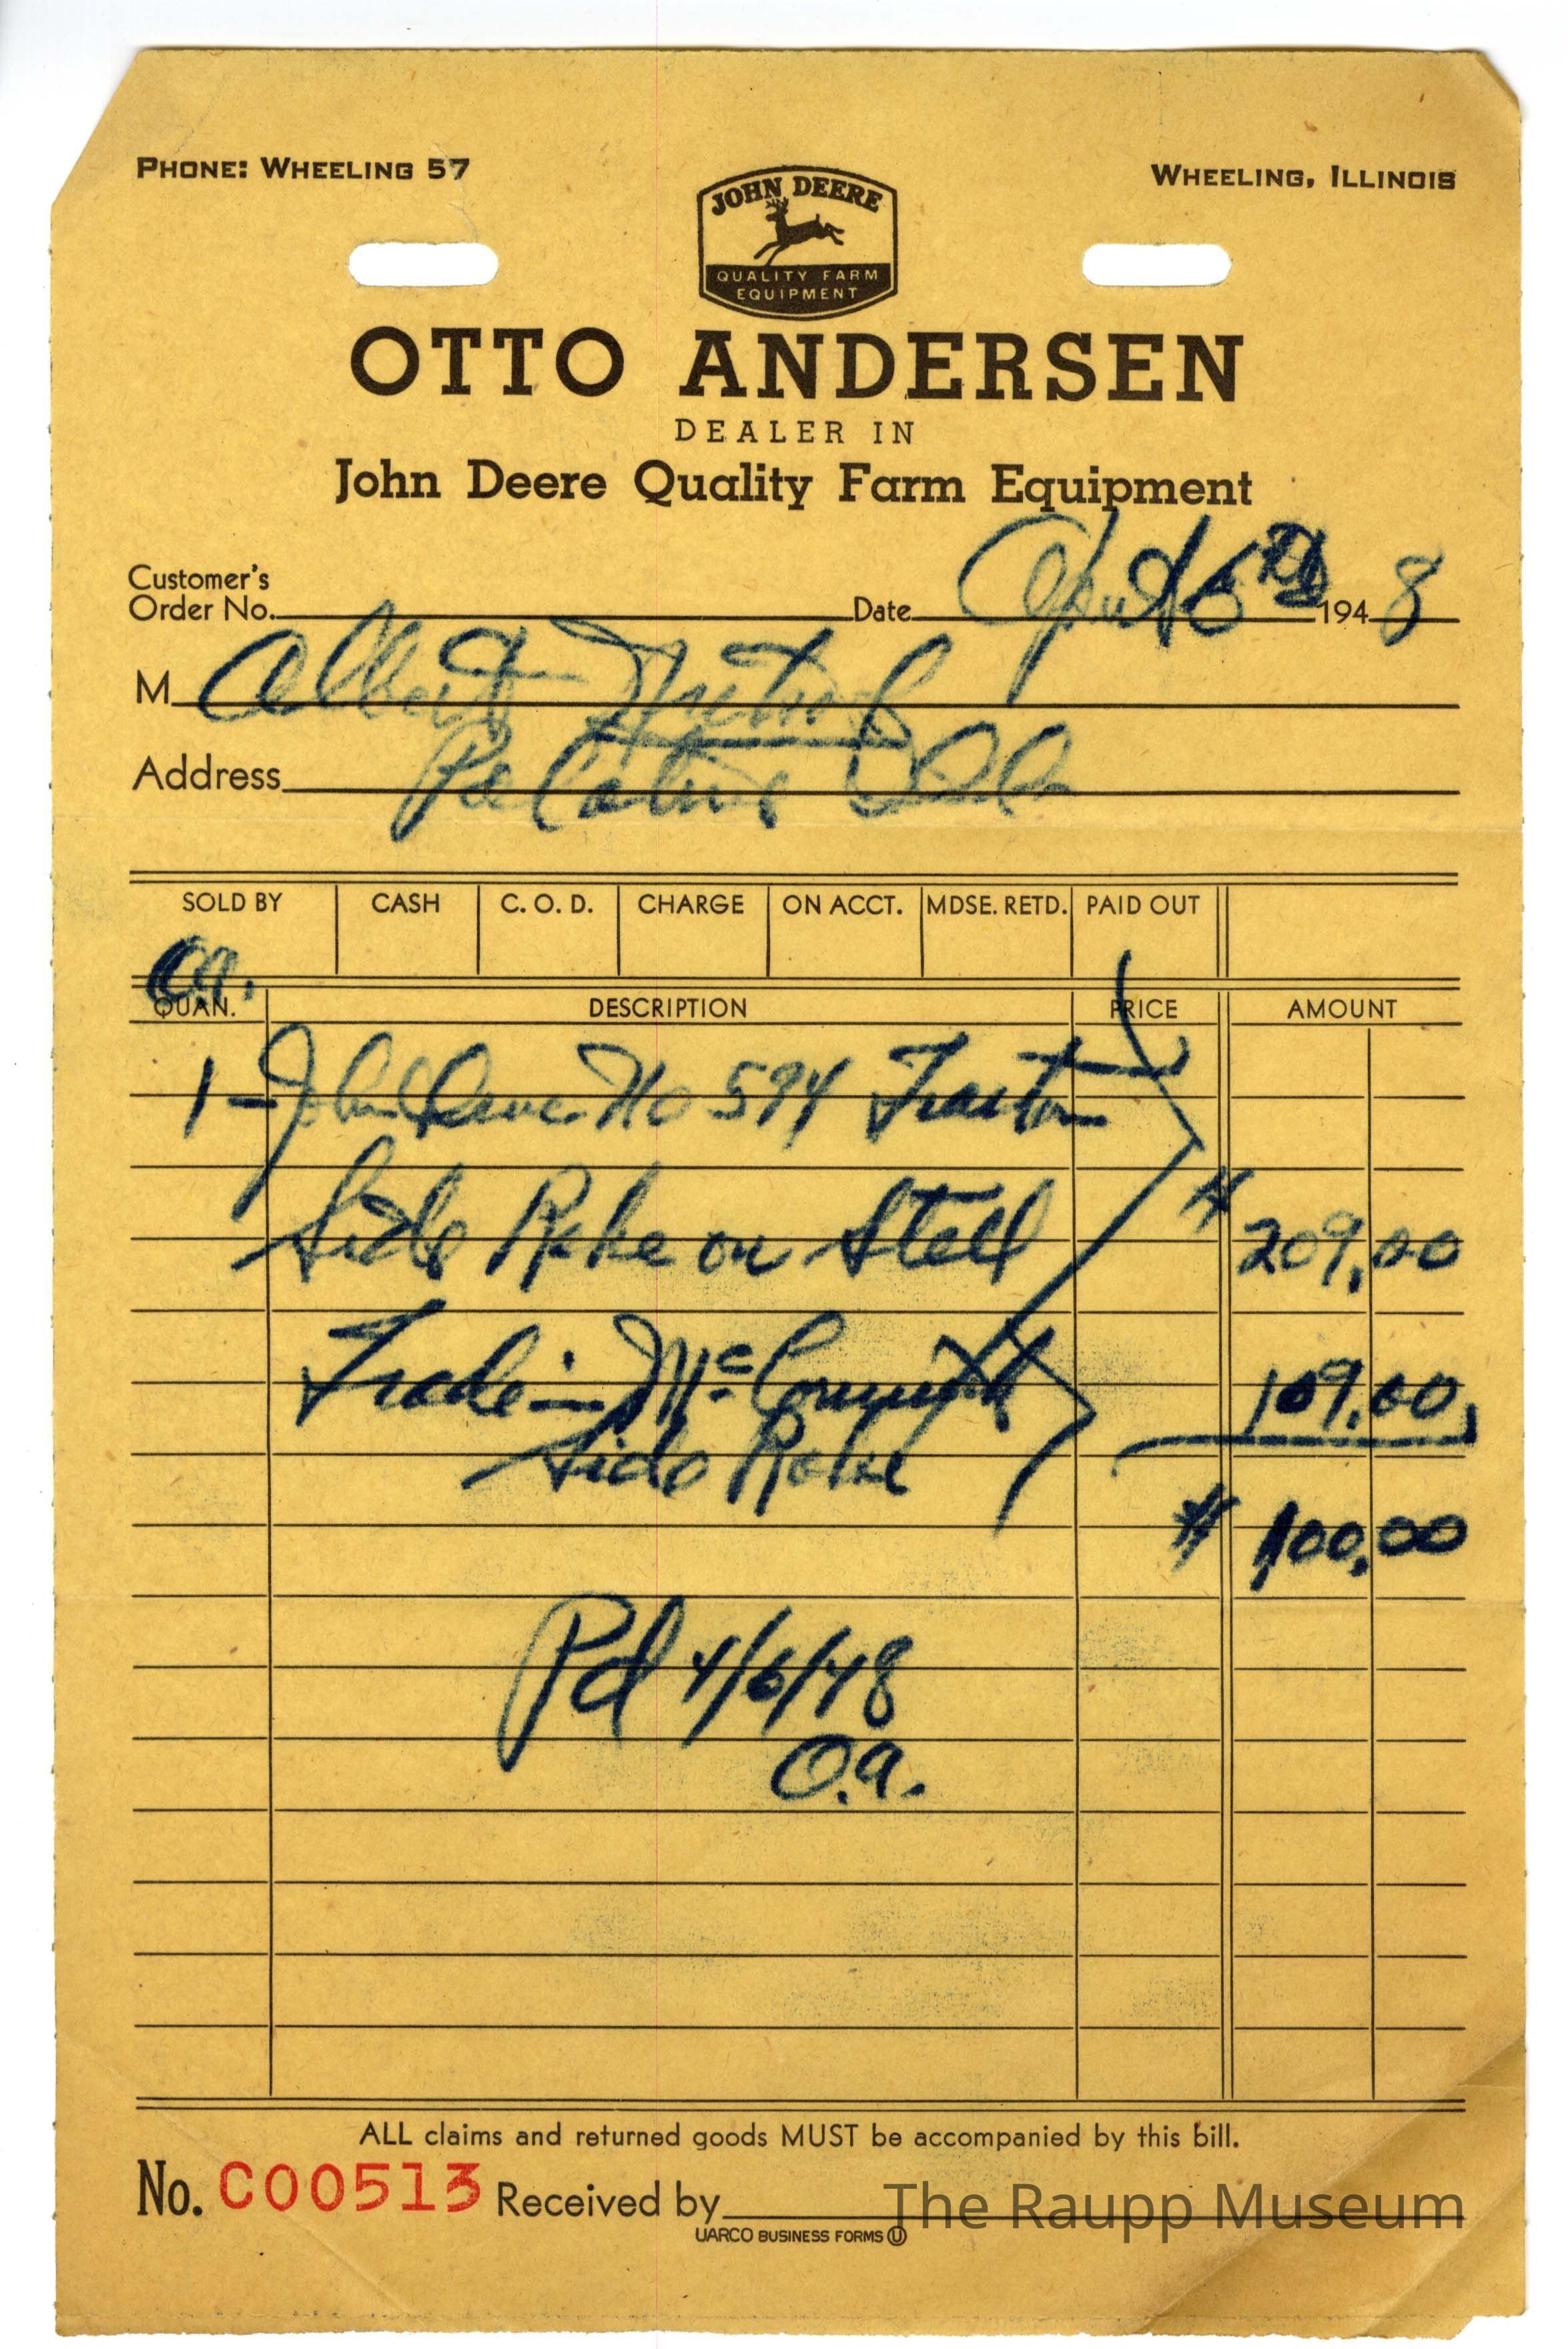 PHONE: WHEELING 57
WHEELING, ILLINOIS
JOHN DEERE
QUALITY FARM
EQUIPMENT
OTTO ANDERSEN
DEALER IN
John Deere Quality Farm Equipment
Customer's
Order No. Date April 6th 1948
M Albert
Address Palatine Ill
SOLD BY CASH C. O. D. CHARGE ON ACCT. MDSE. RETD. PAID OUT
O.a.
QUAN. DESCRIPTION PRICE AMOUNT
1 - John Deere No 594 Tractor
Side Rake on Steel $ 209.00
Trade in McCormick 109.00
Side Rake
$ 100.00
Pd 4/6/48
O.a.
ALL claims and returned goods MUST be accompanied by this bill.
No. C00513 Received by
UARCO BUSINESS FORMS U
The Raupp Museum